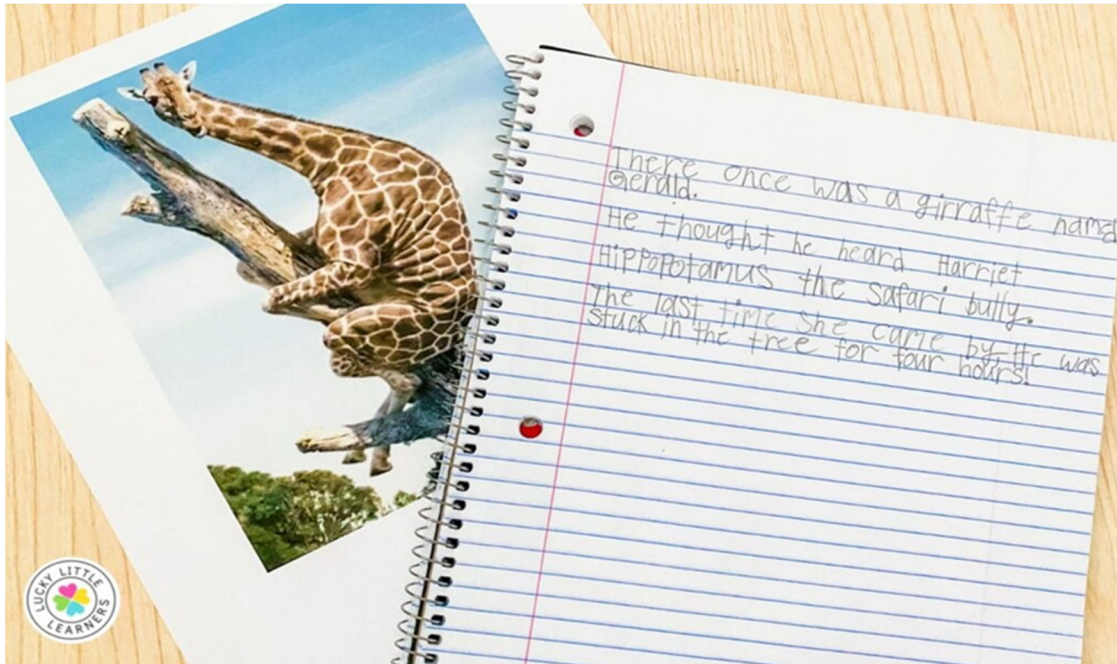 There once was a girraffe name
Gerald.
He thought he heard Harriet
Hippopotamus the safari bully.
The last time she came by He was
stuck in the tree for four hours!
LUCKY LITTLE
LEARNERS